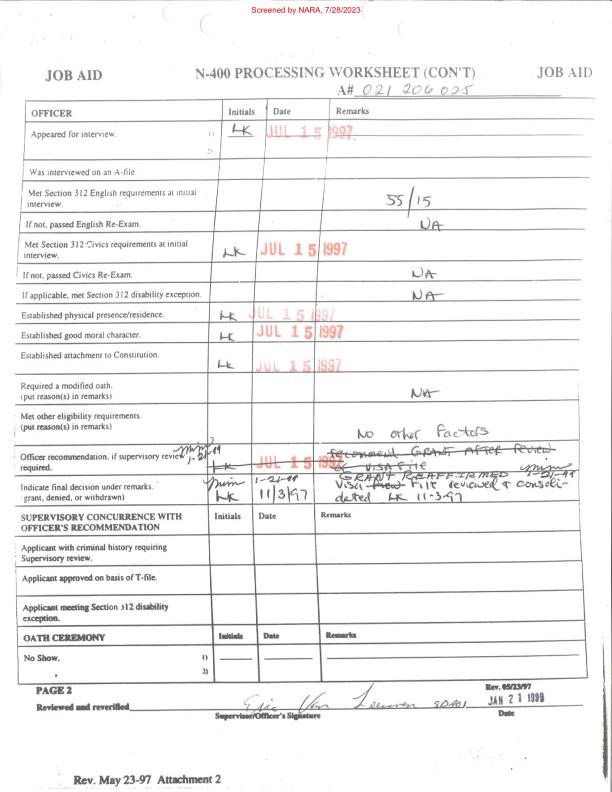 Screened by NARA, 7/28/2023
JOB AID N-400 PROCESSING WORKSHEET (CON'T) JOB AID
A# 021 206 025
OFFICER Initials Date Remarks
Appeared for interview. 1) LK JUL 15 1997
2)
Was interviewed on an A-file.
Met Section 312 English requirements at initial
interview. 55/15
If not, passed English Re-Exam. NA
Met Section 312 Civics requirements at initial
interview. LK JUL 15 1997
If not, passed Civics Re-Exam. NA
If applicable, met Section 312 disability exception. NA
Established physical presence/residence. LK JUL 15 1997
Established good moral character. LK JUL 15 1997
Established attachment to Constitution. LK JUL 15 1997
Required a modified oath.
(put reason(s) in remarks) NA
Met other eligibility requirements.
(put reason(s) in remarks) No other factors
Officer recommendation, if supervisory review mim 1-21-99 recommend GRANT AFTER review
required. LK JUL 15 1997 of VISA File mim
GRANT REAFFIRMED 1-21-99
Indicate final decision under remarks. mim 1-21-99 Visa File reviewed & consoli-
grant, denied, or withdrawn) LK 11/3/97 dated LK 11-3-97
SUPERVISORY CONCURRENCE WITH Initials Date Remarks
OFFICER'S RECOMMENDATION
Applicant with criminal history requiring
Supervisory review.
Applicant approved on basis of T-file.
Applicant meeting Section 312 disability
exception.
OATH CEREMONY Initials Date Remarks
No Show. 1)
2)
PAGE 2 Rev. 05/23/97
Reviewed and reverified Eric Van Leeuven SDAO1 JAN 21 1999
Supervisor/Officer's Signature Date
Rev. May 23-97 Attachment 2